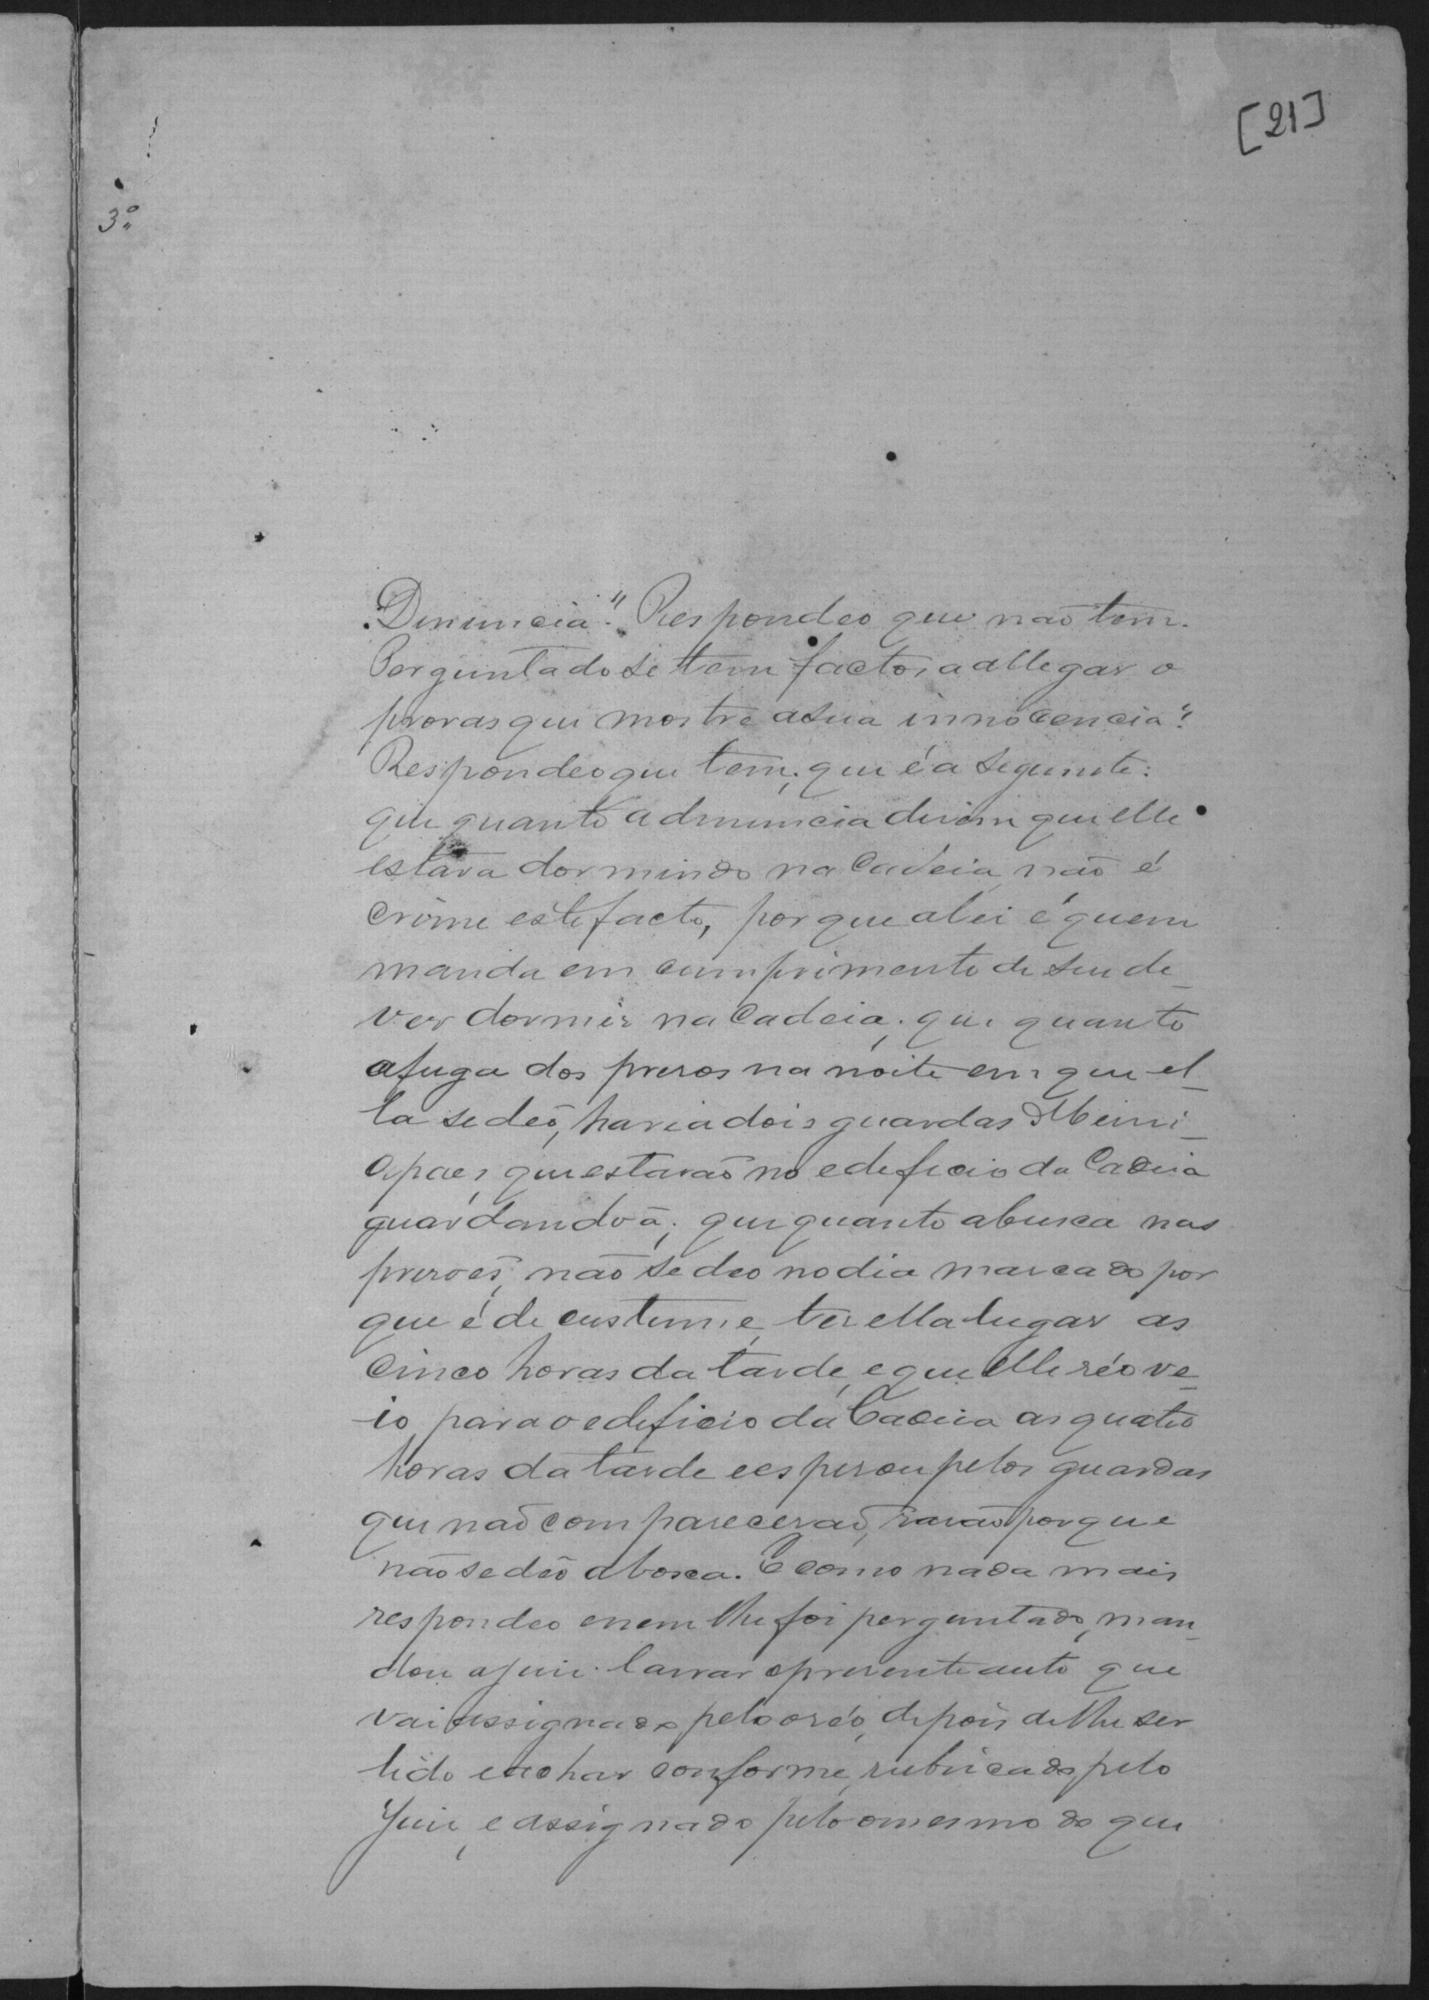 [21]
3º
Denuncia". Respondeo que não tem.
Perguntado se tem factos a allegar o
provas que mostre a sua innocencia".
Respondeo que tem; que é a seguinte:
que quanto a denuncia dizem que elle
estava dormindo na Cadeia não é
crime este facto, porque a lei é quem
manda em cumprimento de seu de-
ver dormir na Cadeia; que quanto
a fuga dos presos na noite em que el-
la se deo, havia dois guardas
que estavão no edeficio da Cadeia
guardando a; que quanto a busca nas
prisoes, não se deo no dia marcado por
que é de custume, ter ella lugar as
cinco horas da tarde, e que elle réo ve-
io para o edificio da Cadeia as quatro
horas da tarde e esperou pelos guardas
que não comparecerão, razão porque
não se deo a bosca. E como nada mais
respondeo e nem lhe foi perguntado, man-
dou o juiz lavrar o presente auto que
vai assignado pelo réo, depois de lhe ser
lido e achar conforme, rubricado pelo
Juiz, e assignado pelo mesmo do que